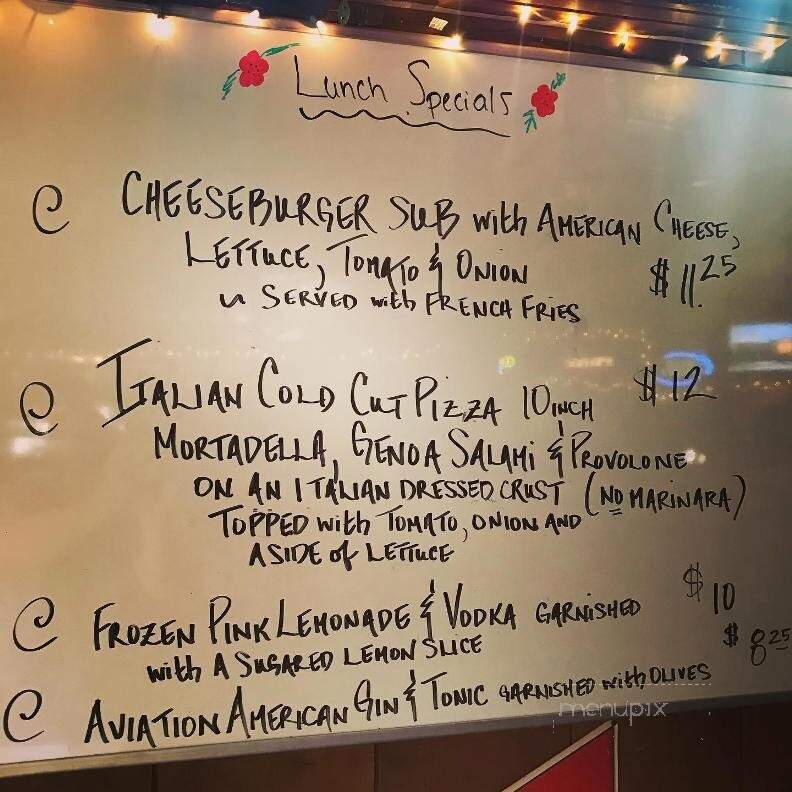 Lunch Specials
CHEESEBURGER SUB with AMERICAN CHEESE,
LETTUCE, TOMATO & ONION $11.25
SERVED with FRENCH FRIES
ITALIAN COLD CUT PIZZA 10INCH $12
MORTADELLA, GENOA SALAMI & PROVOLONE
ON AN ITALIAN DRESSED CRUST (NO MARINARA)
TOPPED with TOMATO, ONION AND
A SIDE of LETTUCE
FROZEN PINK LEMONADE & VODKA GARNISHED $10
with A SUGARED LEMON SLICE
AVIATION AMERICAN GIN & TONIC GARNISHED with OLIVES $8.25
menupix